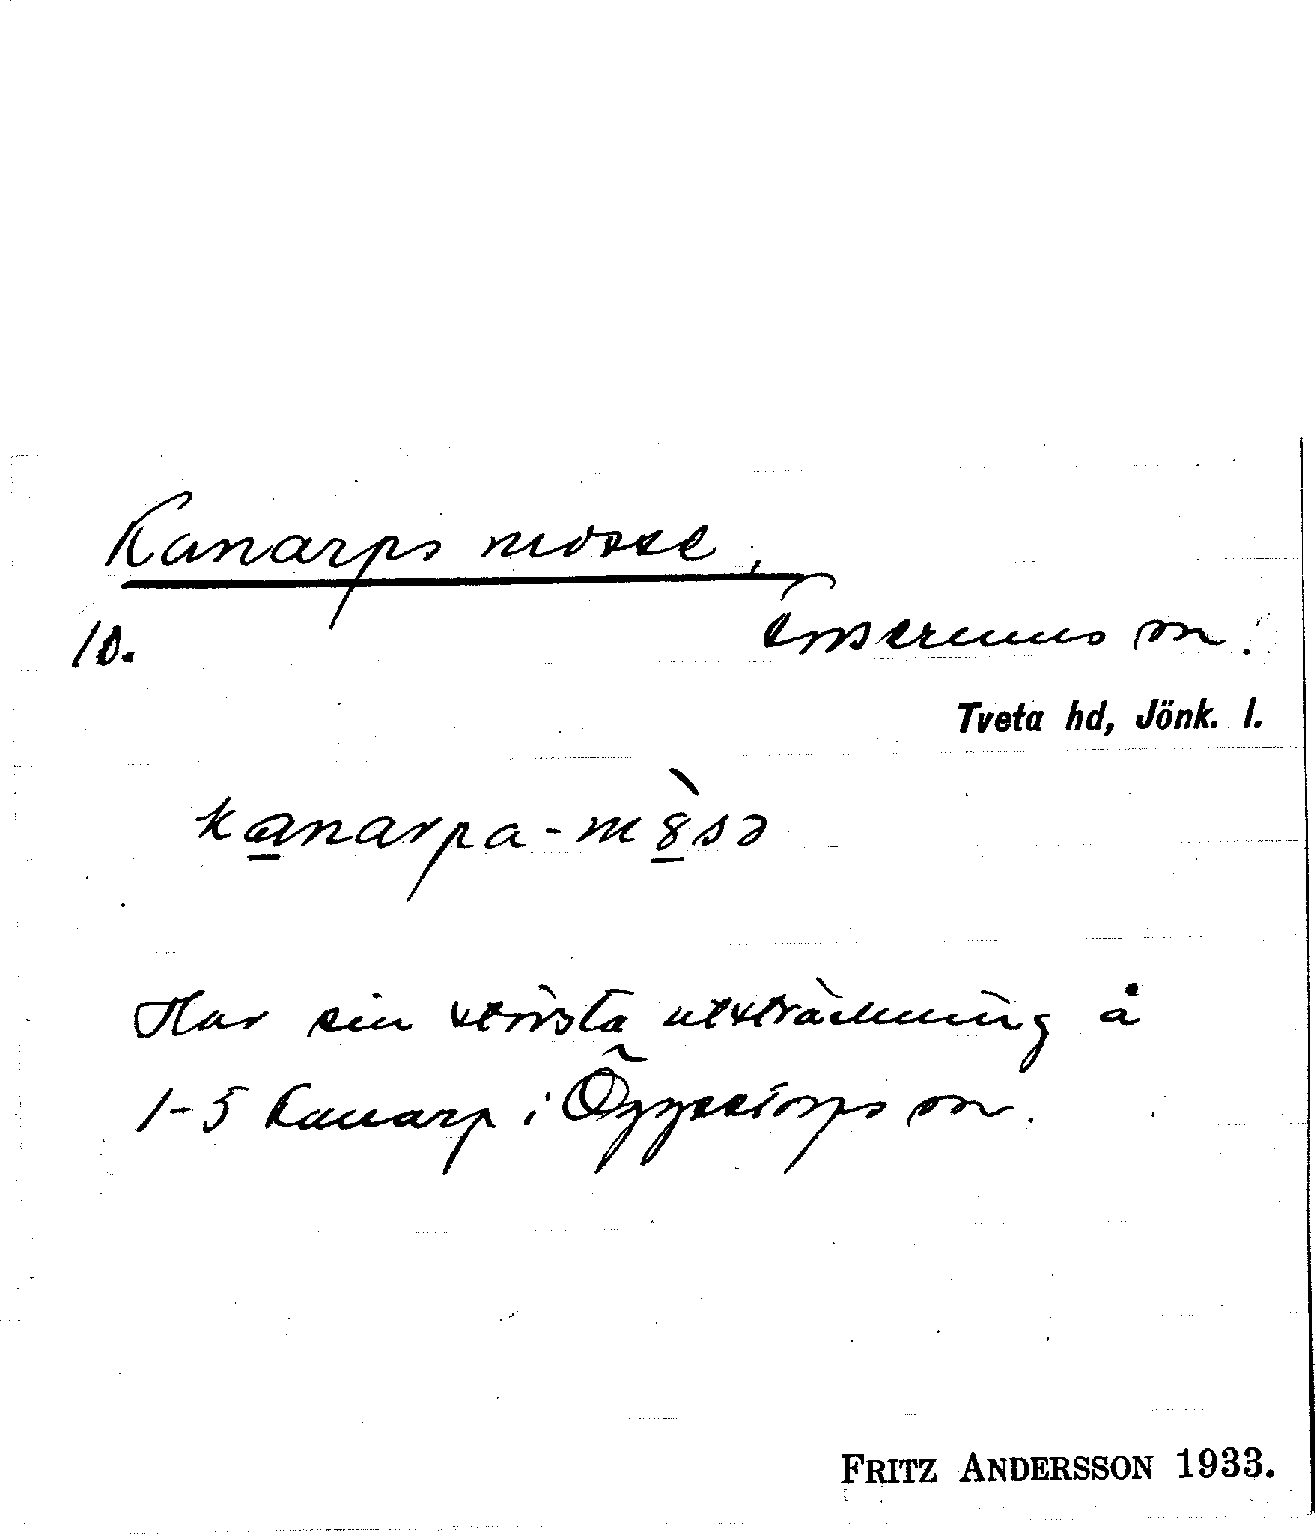 Kanarps mosse,
10.
Tveta hd, Jönk. l.
kanarpa-mȣ̀sə
Har sin största utsträckning å
1-5 Kanarp i Öggestorps sn.
FRITZ ANDERSSON 1933.